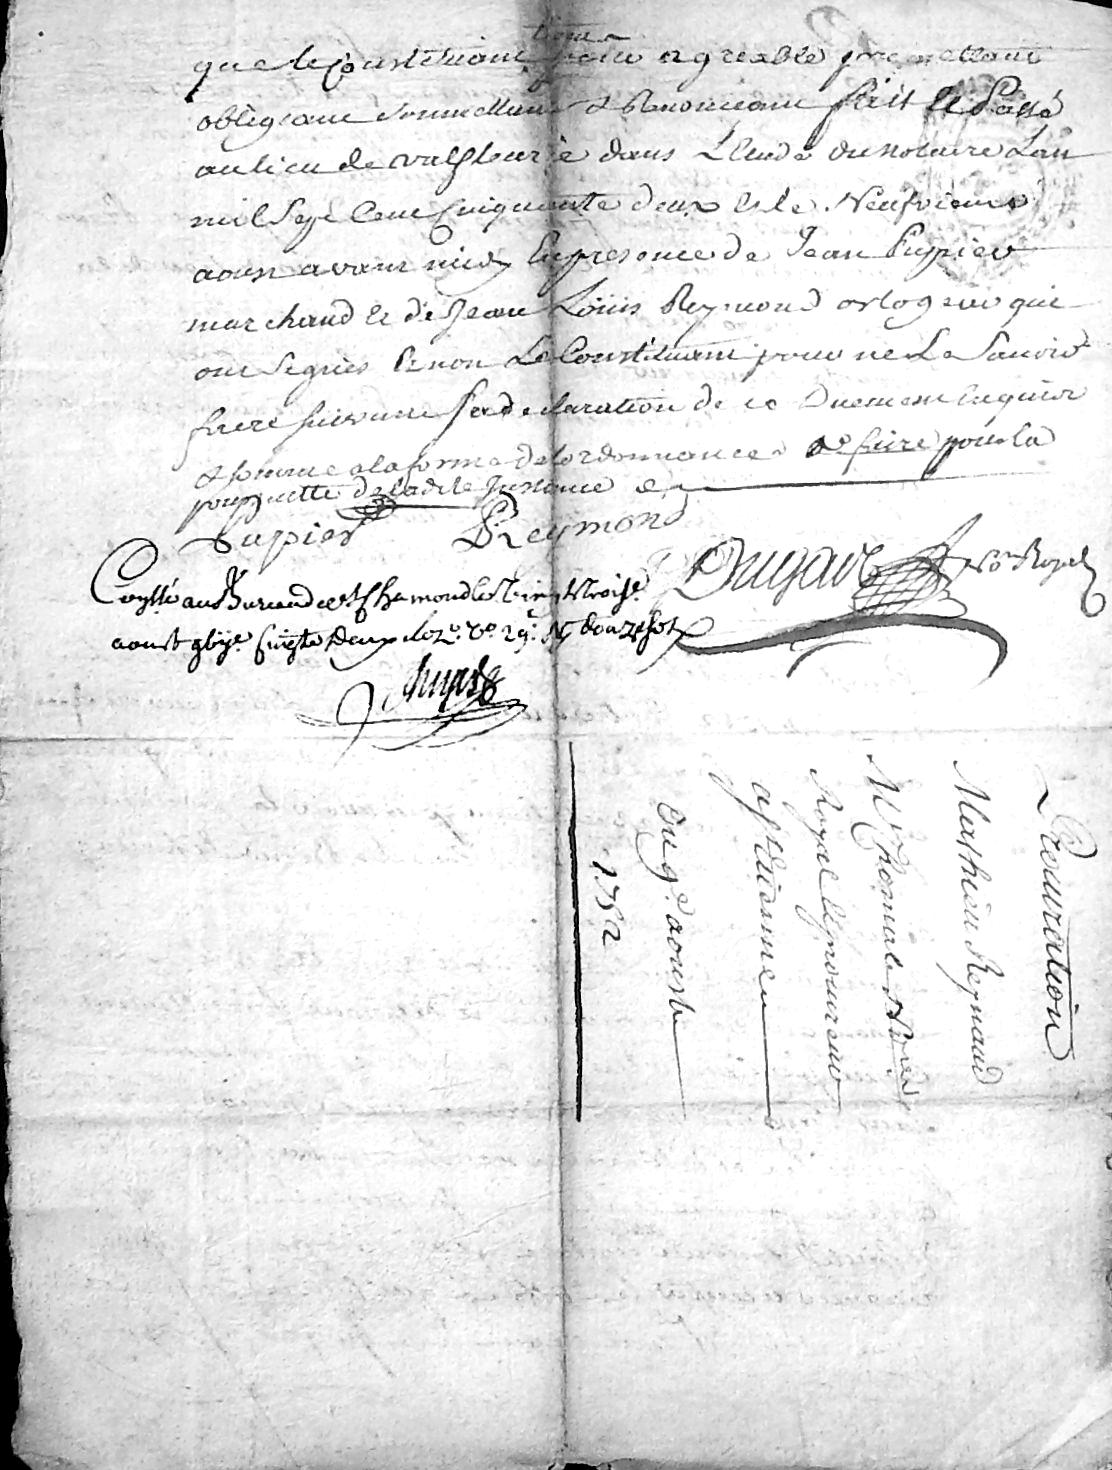 tiens
que le Constituant agreable promettant
obligeant soumettant & Renonceant fait et Passé
au lieu de valfleurie dans L'Etude du notaire L'an
mil Sept Cent Cinquante deux & le Neufvieme
aoust avant midy En presence de Jean Pupier
marchand & de Jean Louis Reymond orlogeur qui
ont Signés & non Le Constituant pour ne Le Savoir
faire suivant sa declaration de ce Duement Enquis
& somme a la forme de l'ordonnance & faire pour la
de ladite Instance &
Pupier Reymond
Dugave No Royal
Conllé au Bureau de St Chamond le Vingt Troise
aoust cinqte deux fo Vo 29 R douze sols
Procuration
Mathieu Reynaud
Me Thomas
Royal & procureur
a St Etienne
Du 9e aoust
1752